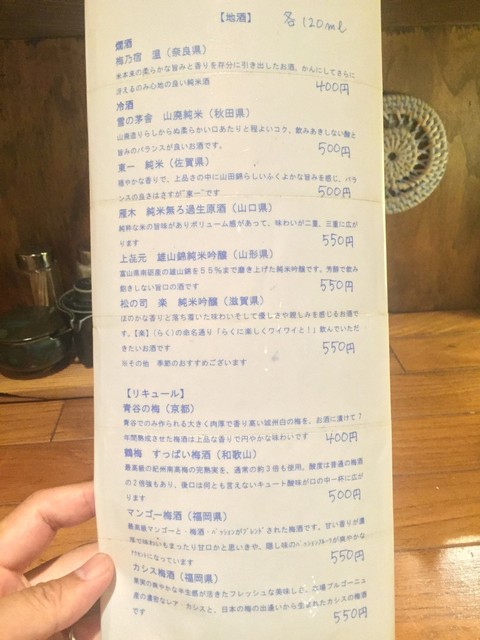 【地酒】 各120ml
燗酒
梅乃宿 温（奈良県）
米本来の柔らかな旨みと香りを存分に引き出したお酒。かんにしてさらに
冴えるのみ心地の良い純米酒 400円
冷酒
雪の茅舎 山廃純米（秋田県）
山廃造りらしからぬ柔らかい口あたりと程よいコク、飲みあきしない酸と
旨みのバランスが良いお酒です。 500円
東一 純米（佐賀県）
穏やかな香りで、上品さの中に山田錦らしいふくよかな旨みを感じ、バラ
ンスの良さはさすが"東一"です 500円
雁木 純米無ろ過生原酒（山口県）
純粋な米の旨味がありボリューム感があって、味わいが二重、三重に広が
ります 550円
上喜元 雄山錦純米吟醸（山形県）
富山県南砺産の雄山錦を55％まで磨き上げた純米吟醸です。芳醇で飲み
飽きしない旨口の酒です 550円
松の司 楽 純米吟醸（滋賀県）
ほのかな香りと落ち着いた味わいそして優しさや親しみを感じるお酒で
す。【楽】（らく）の命名通り「らくに楽しくワイワイと！」飲んでいただ
きたいお酒です 550円
※その他 季節のおすすめございます
【リキュール】
青谷の梅（京都）
青谷でのみ作られる大きく肉厚で香り高い城州白の梅を、お酒に漬けて？
年間熟成させた梅酒は上品な香りで円やかな味わいです 400円
鶴梅 すっぱい梅酒（和歌山）
最高級の紀州南高梅の完熟実を、通常の約3倍も使用。酸度は普通の梅酒
の2倍強もあり、後口は何とも言えないキュート酸味が口の中一杯に広が
ります 500円
マンゴー梅酒（福岡県）
最高級マンゴーと・梅酒・パッションがブレンドされた梅酒です。甘い香りが濃
厚で味わいもまったり甘口かと思いきや、隠し味のパッションフルーツが爽やかな
アクセントになっています 550円
カシス梅酒（福岡県）
果実の爽やかな半生感が活きたフレッシュな美味しさと、穴場ブルゴーニュ
産の濃密なレア・カシスと、日本の梅の出逢いから生まれたカシスの梅酒
です 550円